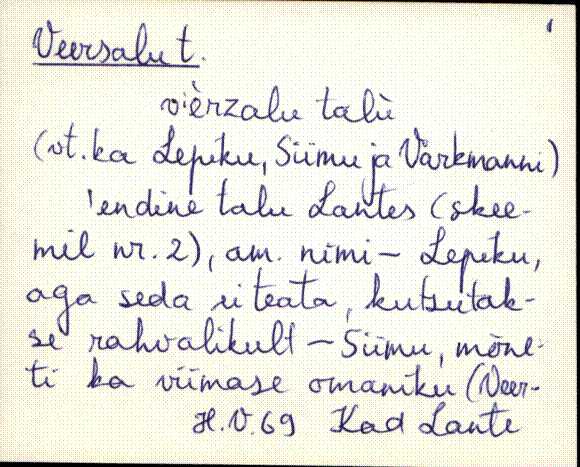 Veersalu t.
vi̬èrzalu talù
(vt. ka Lepiku, Siimu ja Värkmanni)
'endine talu Lantes (skee-
mil nr. 2), am. nimi - Lepiku,
aga seda ei teata, kutsutak-
se rahvalikult - Siimu, mõne-
ti ka viimase omaniku (Veer-
H.V.69 Kad Lante